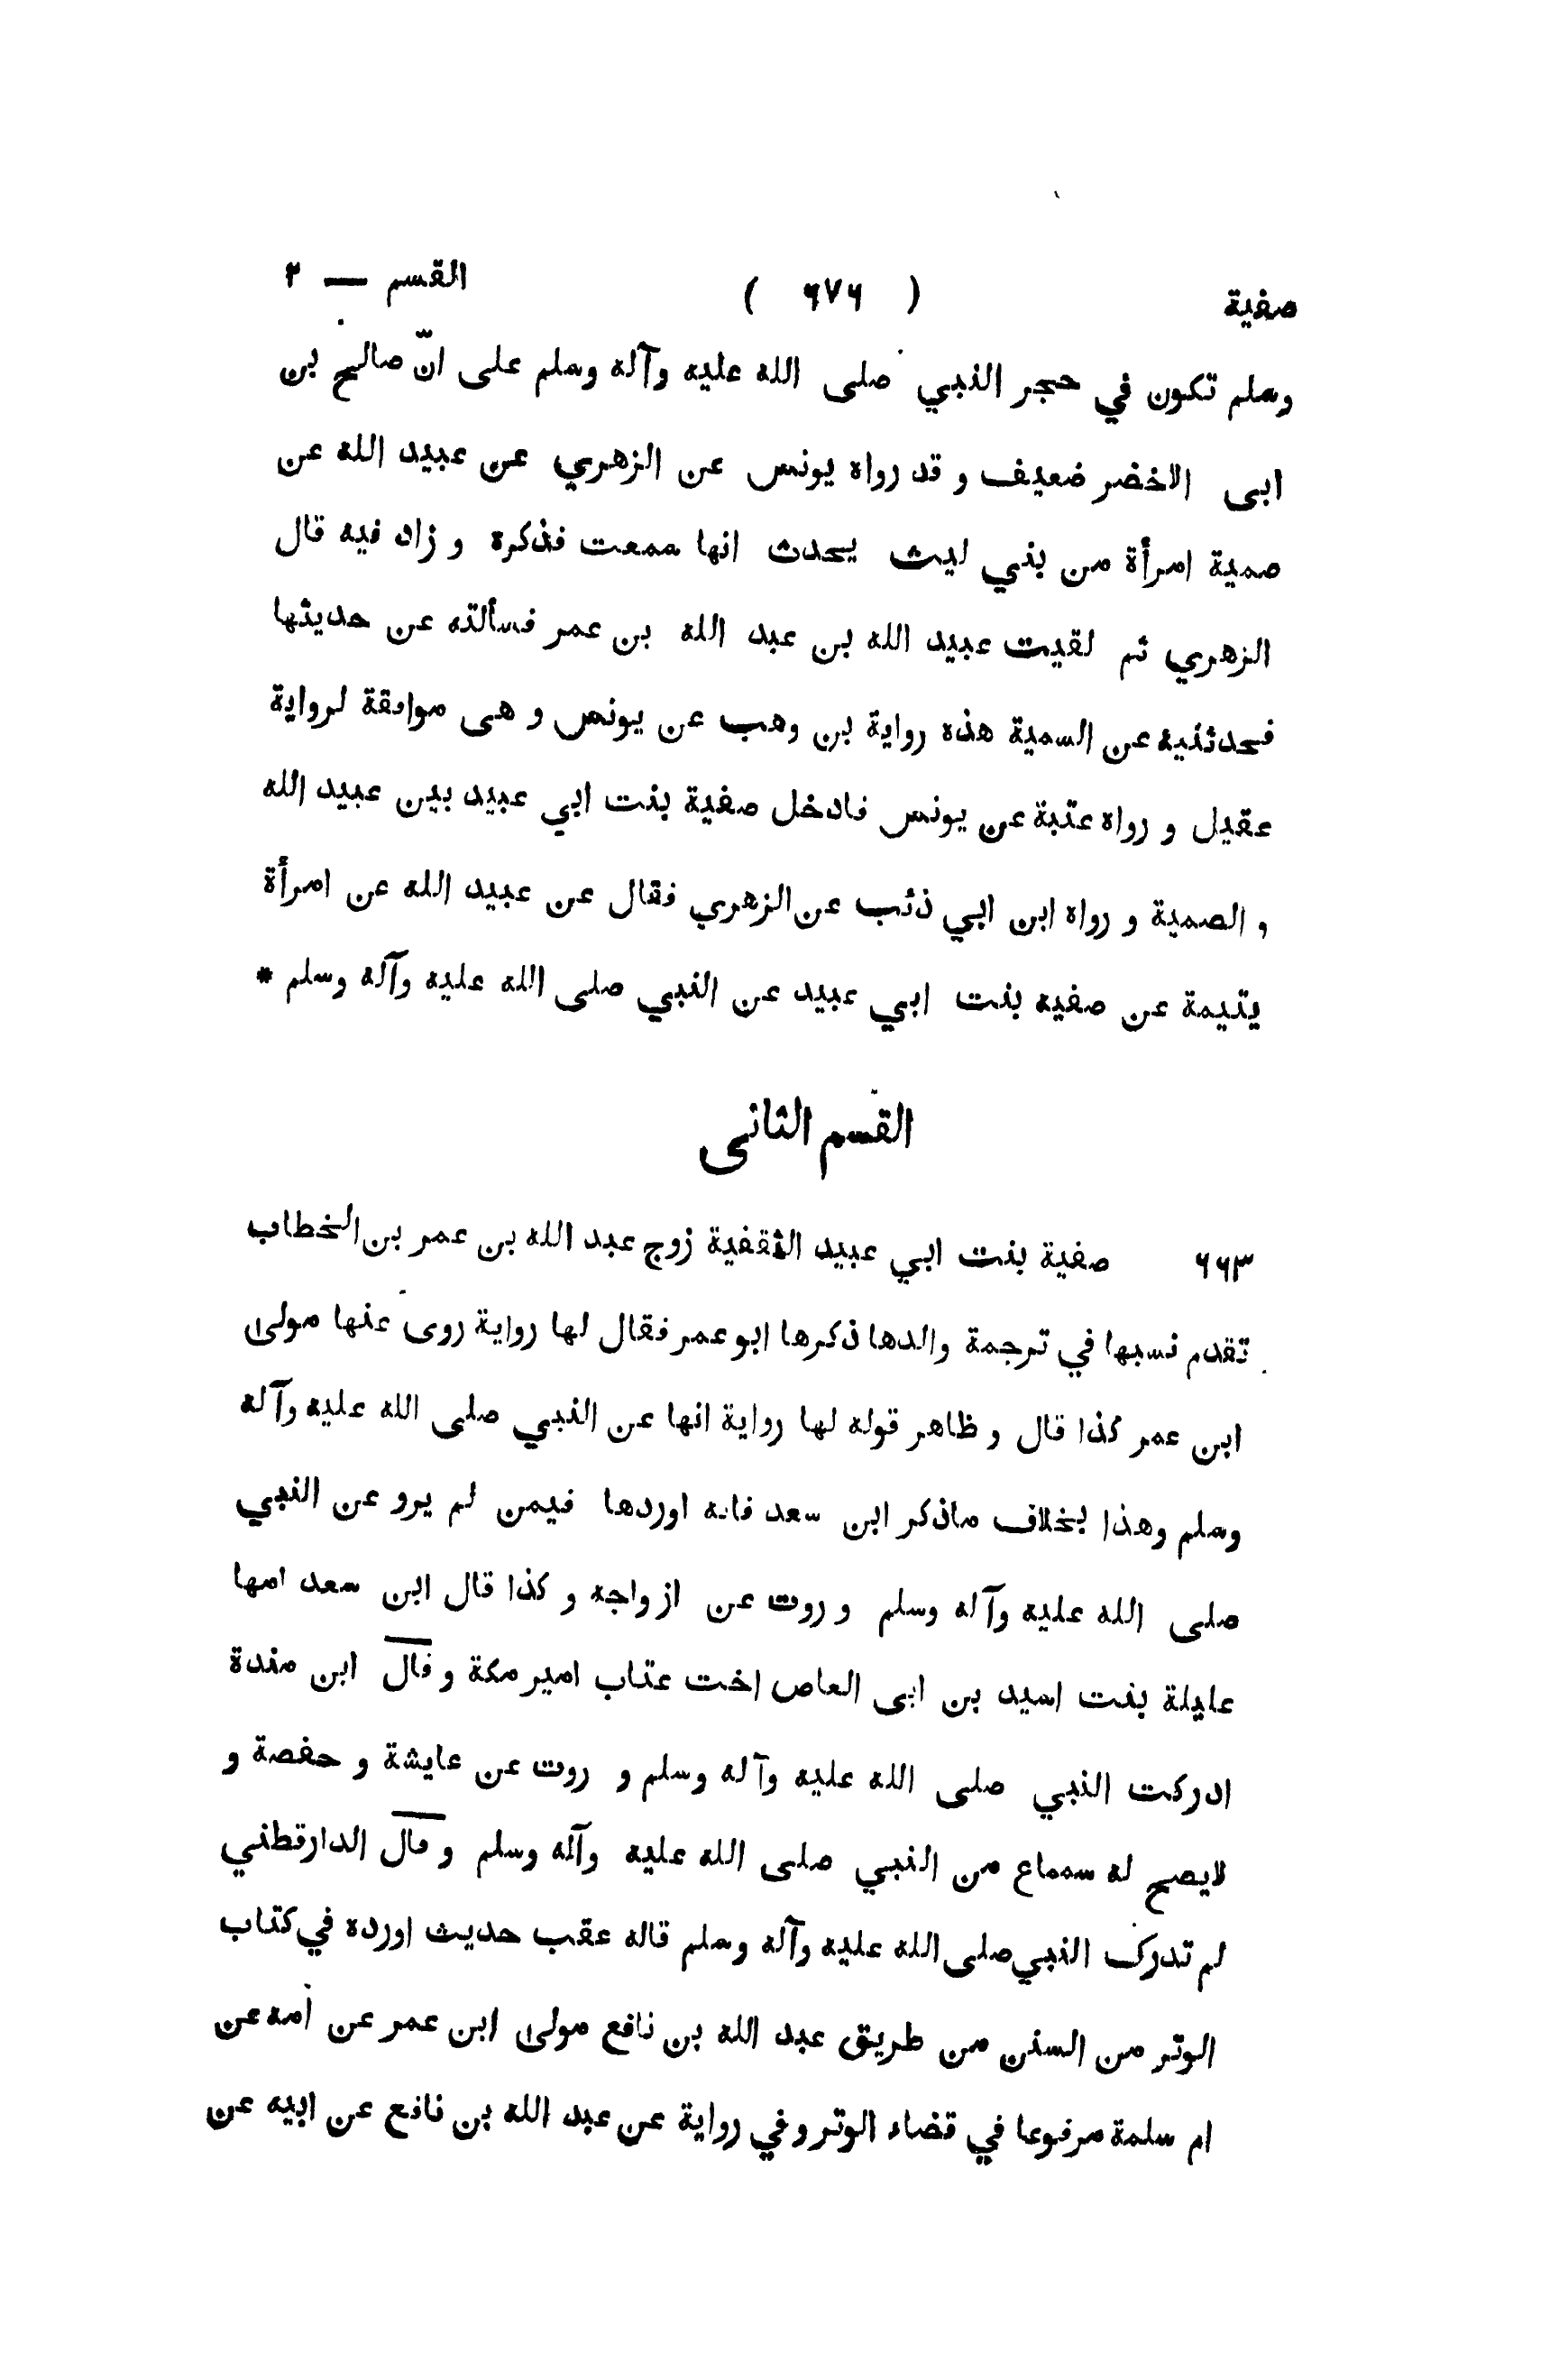 صفية ( ٦٧٦ ) القسم — ٢
وسلم تكون في حجر النبي صلى الله عليه وآله وسلم على انّ صالح بن
ابى الاخضر ضعيف و قد رواه يونس عن الزهري عن عبيد الله عن
صمية امرأة من بني ليث يحدث انها سمعت فذكره و زاد فيه قال
الزهري ثم لقيت عبيد الله بن عبد الله بن عمر فسألته عن حديثها
فحدثنيه عن السمية هذه رواية بن وهب عن يونس و هى موافقة لرواية
عقيل و رواه عتبة عن يونس فادخل صفية بنت ابي عبيد بين عبيد الله
و الصمية و رواه ابن ابي ذئب عن الزهري فقال عن عبيد الله عن امرأة
يتيمة عن صفيه بنت ابي عبيد عن النبي صلى الله عليه وآله وسلم *
القسم الثانى
٦٦٣ صفية بنت ابي عبيد الثقفية زوج عبد الله بن عمر بن الخطاب
تقدم نسبها في ترجمة والدها ذكرها ابو عمر فقال لها رواية روى عنها مولى
ابن عمر كذا قال و ظاهر قوله لها رواية انها عن النبي صلى الله عليه وآله
وسلم وهذا بخلاف ماذكر ابن سعد فانه اوردها فيمن لم يرو عن النبي
صلى الله عليه وآله وسلم و روت عن ازواجه و كذا قال ابن سعد امها
عايلة بنت اسيد بن ابى العاص اخت عتاب امير مكة و قال ابن مندة
ادركت النبي صلى الله عليه وآله وسلم و روت عن عايشة و حفصة و
لايصح له سماع من النبي صلى الله عليه وآله وسلم و قال الدارقطني
لم تدرك النبي صلى الله عليه وآله وسلم قاله عقب حديث اورده في كتاب
الوتر من السنن من طريق عبد الله بن نافع مولى ابن عمر عن أمه عن
ام سلمة مرفوعا في قضاء الوتر و في رواية عن عبد الله بن نافع عن ابيه عن